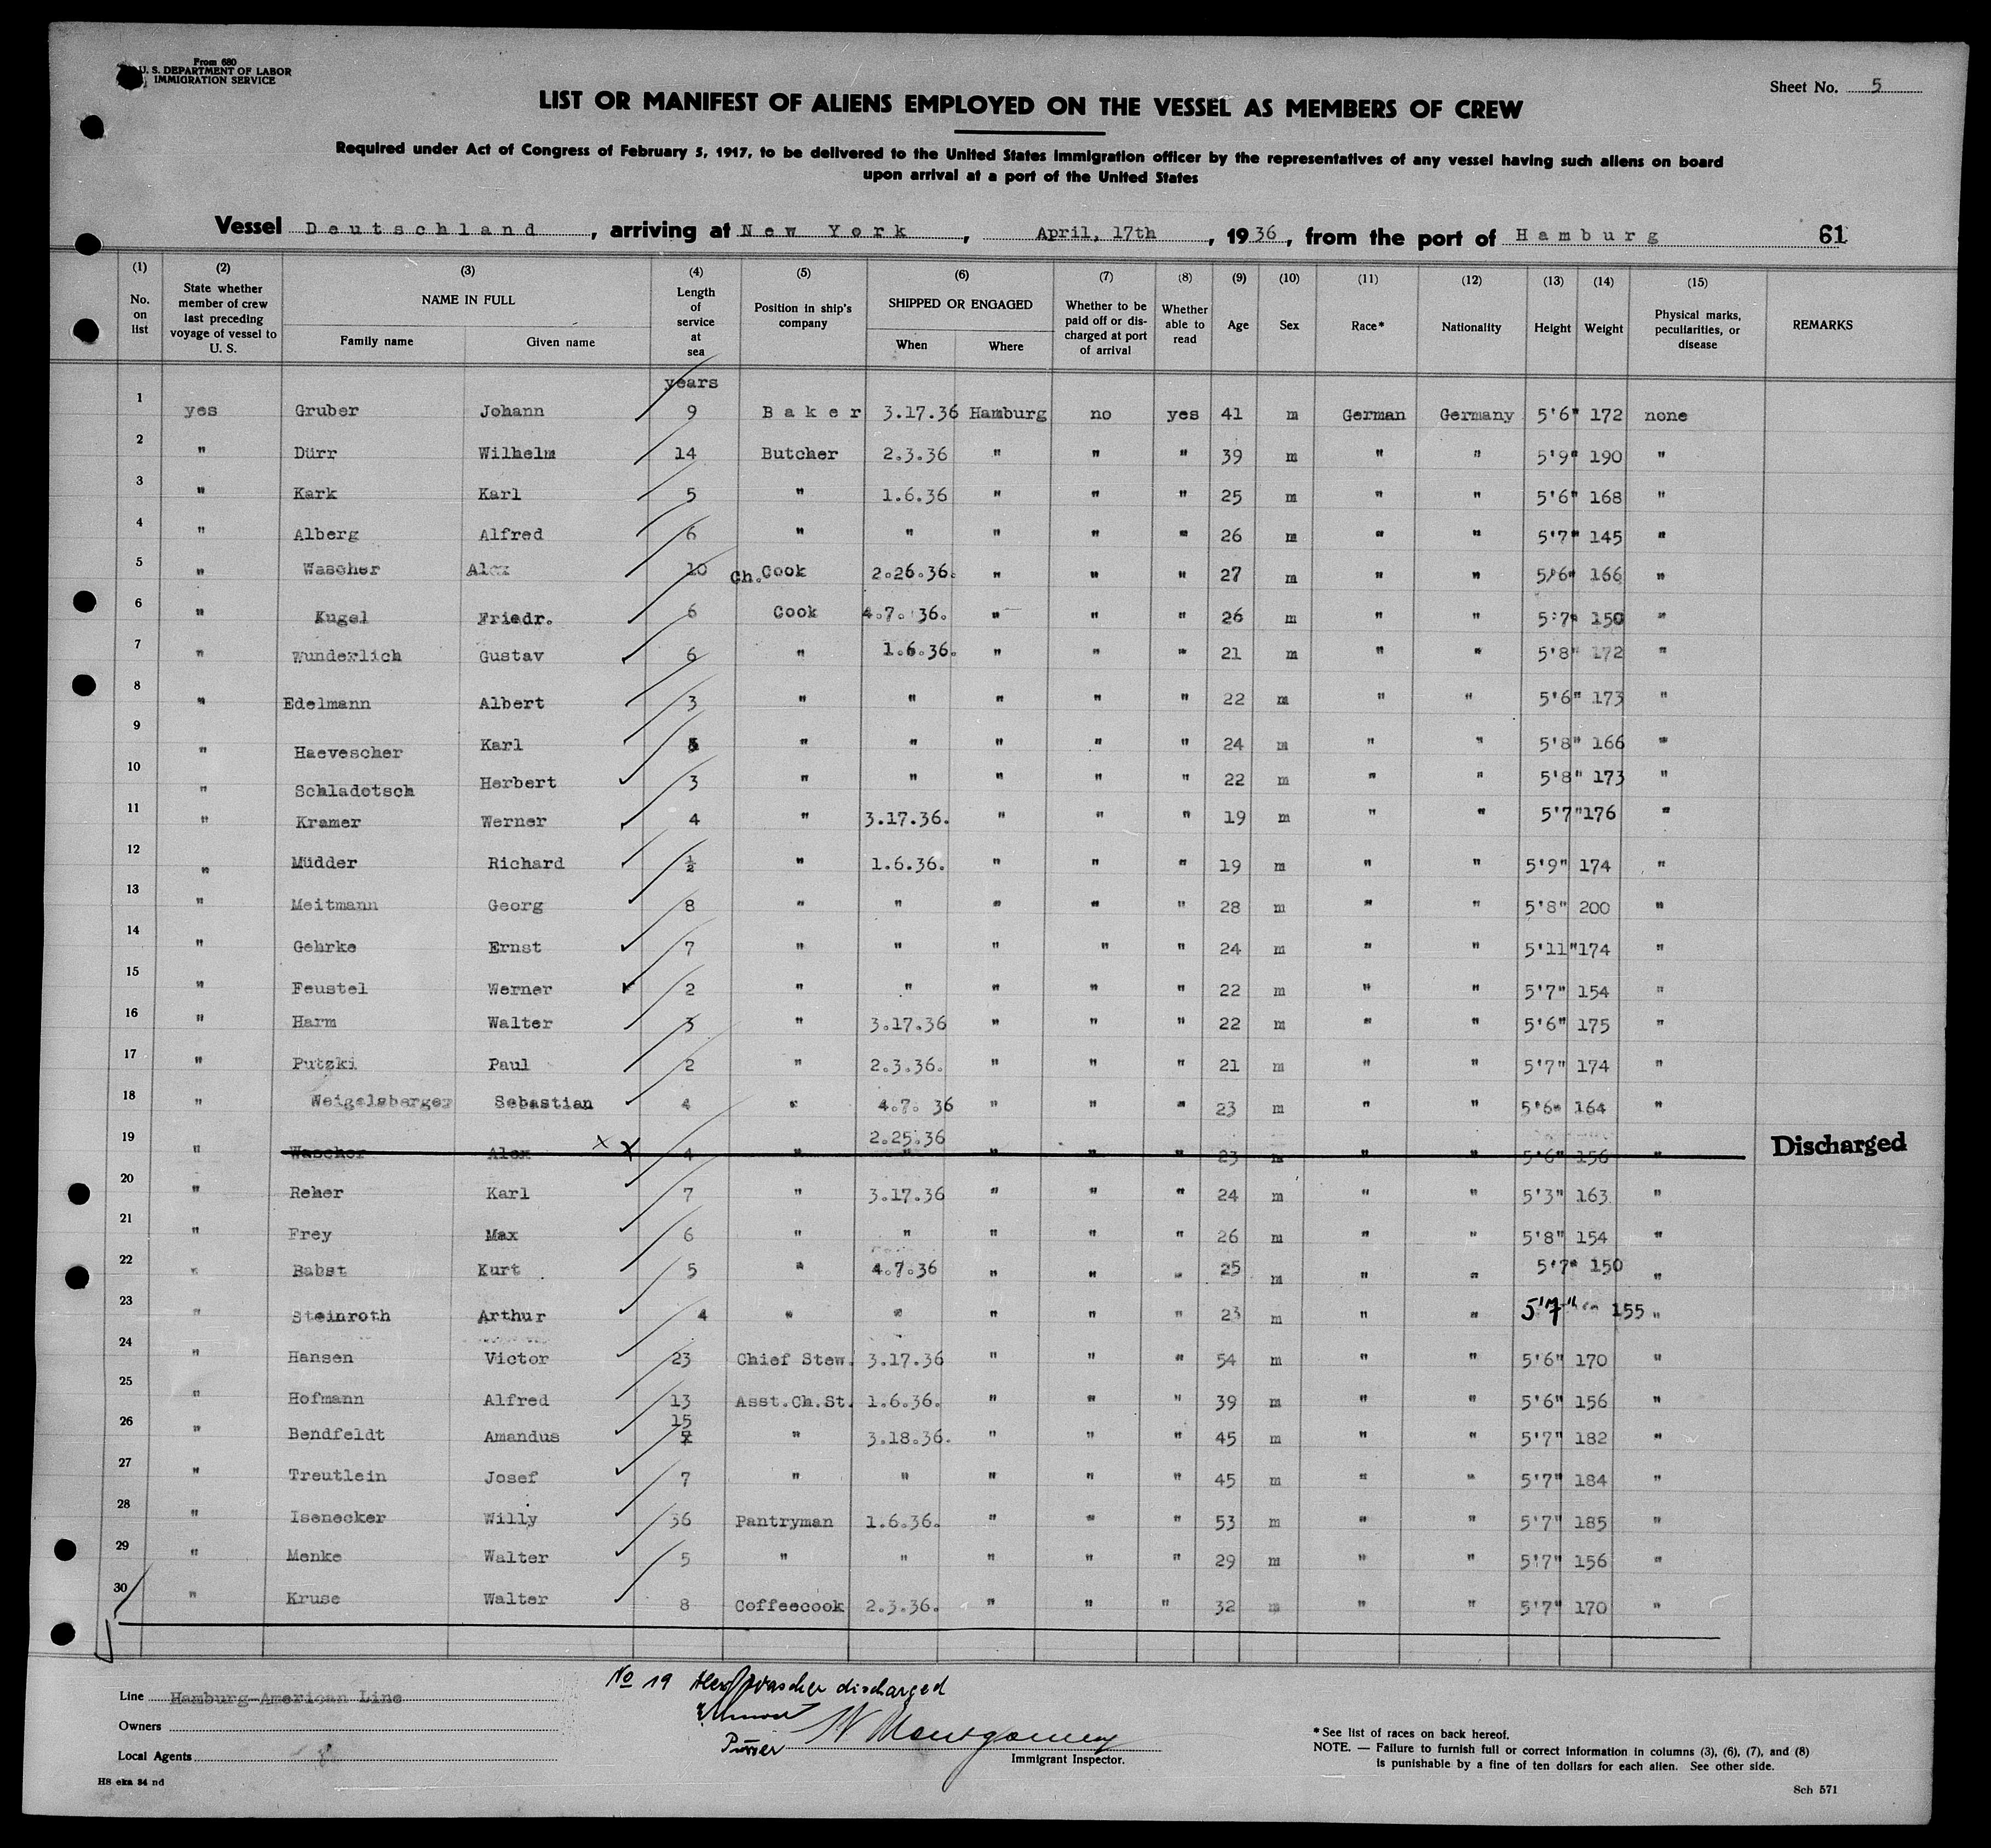 Form 680
U. S. DEPARTMENT OF LABOR
IMMIGRATION SERVICE
Sheet No. 5
LIST OR MANIFEST OF ALIENS EMPLOYED ON THE VESSEL AS MEMBERS OF CREW
Required under Act of Congress of February 5, 1917, to be delivered to the United States immigration officer by the representatives of any vessel having such aliens on board
upon arrival at a port of the United States
Vessel Deutschland, arriving at New York, April, 17th, 1936, from the port of Hamburg 61
(1) No. on list (2) State whether member of crew last preceding voyage of vessel to U. S. (3) NAME IN FULL Family name Given name (4) Length of service at sea (5) Position in ship's company (6) SHIPPED OR ENGAGED When Where (7) Whether to be paid off or discharged at port of arrival (8) Whether able to read (9) Age (10) Sex (11) Race* (12) Nationality (13) Height (14) Weight (15) Physical marks, peculiarities, or disease REMARKS
years
1 yes Gruber Johann 9 Baker 3.17.36 Hamburg no yes 41 m German Germany 5'6" 172 none
2 " Dürr Wilhelm 14 Butcher 2.3.36 " " " 39 m " " 5'9" 190 "
3 " Kark Karl 5 " 1.6.36 " " " 25 m " " 5'6" 168 "
4 " Alberg Alfred 6 " " " " " 26 m " " 5'7" 145 "
5 " Wascher Alex 10 Ch. Cook 2.26.36. " " " 27 m " " 5'6" 166 "
6 " Kugel Friedr. 6 Cook 4.7. 36. " " " 26 m " " 5'7" 150 "
7 " Wunderlich Gustav 6 " 1.6.36. " " " 21 m " " 5'8" 172 "
8 " Edelmann Albert 3 " " " " " 22 m " " 5'6" 173 "
9 " Haevescher Karl " " " " " 24 m " " 5'8" 166 "
10 " Schladotsch Herbert 3 " " " " " 22 m " " 5'8" 173 "
11 " Kramer Werner 4 " 3.17.36. " " " 19 m " " 5'7" 176 "
12 " Müdder Richard ½ " 1.6.36. " " " 19 m " " 5'9" 174 "
13 " Meitmann Georg 8 " " " " " 28 m " " 5'8" 200 "
14 " Gehrke Ernst 7 " " " " " 24 m " " 5'11" 174 "
15 " Feustel Werner 2 " " " " " 22 m " " 5'7" 154 "
16 " Harm Walter 3 " 3.17.36 " " " 22 m " " 5'6" 175 "
17 " Putzki Paul 2 " 2.3.36. " " " 21 m " " 5'7" 174 "
18 " Weigelsberger Sebastian 4 " 4.7. 36 " " " 23 m " " 5'6" 164 "
19 " Wascher Alex x x 4 " 2.25.36 " " " " 23 m " " 5'6" 156 " Discharged
20 " Reher Karl 7 " 3.17.36 " " " 24 m " " 5'3" 163 "
21 " Frey Max 6 " " " " " 26 m " " 5'8" 154 "
22 " Babst Kurt 5 " 4.7.36 " " " 25 m " " 5'7" 150 "
23 " Steinroth Arthur 4 " " " " " 23 m " " 5'7" 155 "
24 " Hansen Victor 23 Chief Stew. 3.17.36 " " " 54 m " " 5'6" 170 "
25 " Hofmann Alfred 13 Asst.Ch.St. 1.6.36. " " " 39 m " " 5'6" 156 "
26 " Bendfeldt Amandus 15 7 " 3.18.36. " " " 45 m " " 5'7" 182 "
27 " Treutlein Josef 7 " " " " " 45 m " " 5'7" 184 "
28 " Isenecker Willy 36 Pantryman 1.6.36. " " " 53 m " " 5'7" 185 "
29 " Menke Walter 5 " " " " " 29 m " " 5'7" 156 "
30 " Kruse Walter 8 Coffeecook 2.3.36. " " " 32 m " " 5'7" 170 "
No 19 Alex Wascher discharged
Line Hamburg-American Line
Owners
Local Agents
Purser
W Montgomery
Immigrant Inspector.
*See list of races on back hereof.
NOTE. — Failure to furnish full or correct information in columns (3), (6), (7), and (8)
is punishable by a fine of ten dollars for each alien. See other side.
H8 eka 84 nd
Sch 571